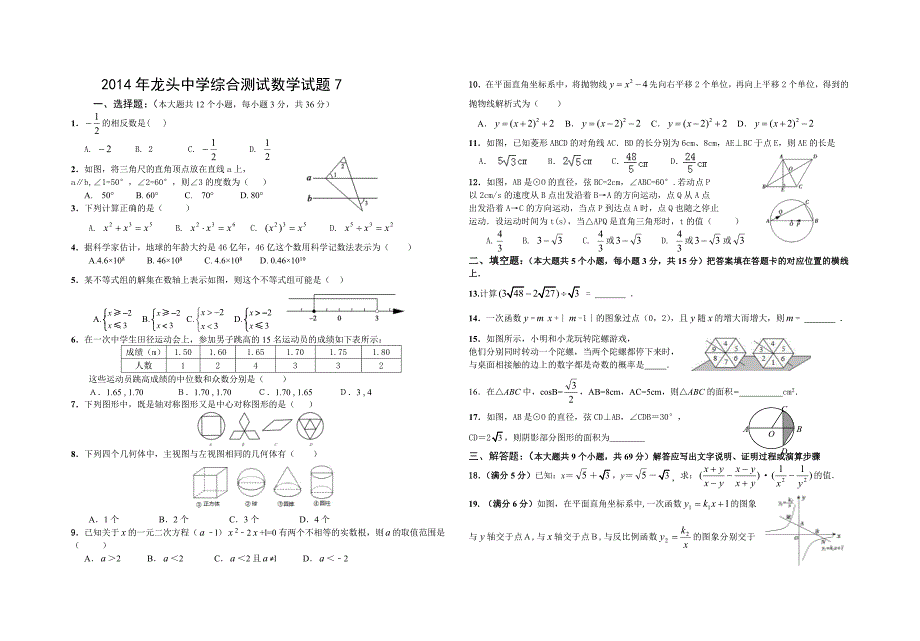 2014 年龙头中学综合测试数学试题 7
一、选择题:（本大题共 12 个小题，每小题 3 分，共 36 分）
1．－1/2 的相反数是( )
A. －2 B. 2 C. －1/2 D. 1/2
2．如图，将三角尺的直角顶点放在直线 a 上，
a∥b,∠1=50°，∠2=60°，则∠3 的度数为（ ）
A. 50° B. 60° C. 70° D. 80°
3．下列计算正确的是（ ）
A. x²＋x³＝x⁵ B. x²·x³＝x⁶ C. (x²)³＝x⁵ D. x⁵÷x³＝x²
4．据科学家估计，地球的年龄大约是 46 亿年，46 亿这个数用科学记数法表示为（ ）
A.4.6×10⁸ B. 46×10⁸ C. 4.6×10⁹ D. 0.46×10¹⁰
5．某不等式组的解集在数轴上表示如图，则这个不等式组可能是（ ）
A.{x≥－2 x≤3 B.{x≥－2 x＜3 C.{x＞－2 x＜3 D.{x＞－2 x≤3
－2 0 3
6．在一次中学生田径运动会上，参加男子跳高的 15 名运动员的成绩如下表所示：
成绩（m） 1.50 1.60 1.65 1.70 1.75 1.80
人数 1 2 4 3 3 2
这些运动员跳高成绩的中位数和众数分别是（ ）
A．1.65 , 1.70 B．1.70 , 1.70 C．1.70 , 1.65 D．3 , 4
7．下列图形中，既是轴对称图形又是中心对称图形的是（ ）
A B C D
8．下列四个几何体中，主视图与左视图相同的几何体有（ ）
①正方体 ②球 ③圆锥 ④圆柱
A．1 个 B．2 个 C．3 个 D．4 个
9．已知关于 x 的一元二次方程（a﹣l）x²－2x＋l=0 有两个不相等的实数根，则 a 的取值范围是
（ ）
A．a＞2 B．a＜2 C．a＜2 且 a≠l D．a＜﹣2
10．在平面直角坐标系中，将抛物线 y＝x²－4 先向右平移 2 个单位，再向上平移 2 个单位，得到的
抛物线解析式为（ ）
A．y＝(x＋2)²＋2 B．y＝(x－2)²－2 C．y＝(x－2)²＋2 D．y＝(x＋2)²－2
11．如图，已知菱形 ABCD 的对角线 AC．BD 的长分别为 6cm、8cm，AE⊥BC 于点 E，则 AE 的长是
A．5√3cm B．2√5cm C．48/5cm D．24/5cm
12．如图，AB 是⊙O 的直径，弦 BC=2cm，∠ABC=60°．若动点 P
以 2cm/s 的速度从 B 点出发沿着 B→A 的方向运动，点 Q 从 A 点
出发沿着 A→C 的方向运动，当点 P 到达点 A 时，点 Q 也随之停止
运动．设运动时间为 t(s)，当△APQ 是直角三角形时，t 的值（ ）
A.4/3 B.3－√3 C.4/3或3－√3 D.4/3或3－√3或√3
二、填空题:（本大题共 5 个小题，每小题 3 分，共 15 分）把答案填在答题卡的对应位置的横线
上．
13.计算(3√48－2√27)÷√3 = ______ ．
14．一次函数 y=m x+∣m -1∣的图象过点（0，2），且 y 随 x 的增大而增大，则 m = ______ ．
15．如图所示，小明和小龙玩转陀螺游戏，
他们分别同时转动一个陀螺，当两个陀螺都停下来时，
与桌面相接触的边上的数字都是奇数的概率是____．
16．在△ABC 中，cosB=√3/2，AB=8cm，AC=5cm，则△ABC 的面积=________cm²．
17．如图，AB 是⊙O 的直径，弦 CD⊥AB，∠CDB＝30°，
CD＝2√3，则阴影部分图形的面积为________
三、解答题:（本大题共 9 个小题，共 69 分）解答应写出文字说明、证明过程或演算步骤
18.（满分 5 分）已知：x＝√5＋√3，y＝√5－√3．求：((x＋y)/(x－y)－(x－y)/(x＋y))·(1/x²－1/y²)的值．
19.（满分 6 分）如图，在平面直角坐标系中,一次函数 y₁＝k₁x＋1 的图象
与 y 轴交于点 A,与 x 轴交于点 B,与反比例函数 y₂＝k₂/x 的图象分别交于